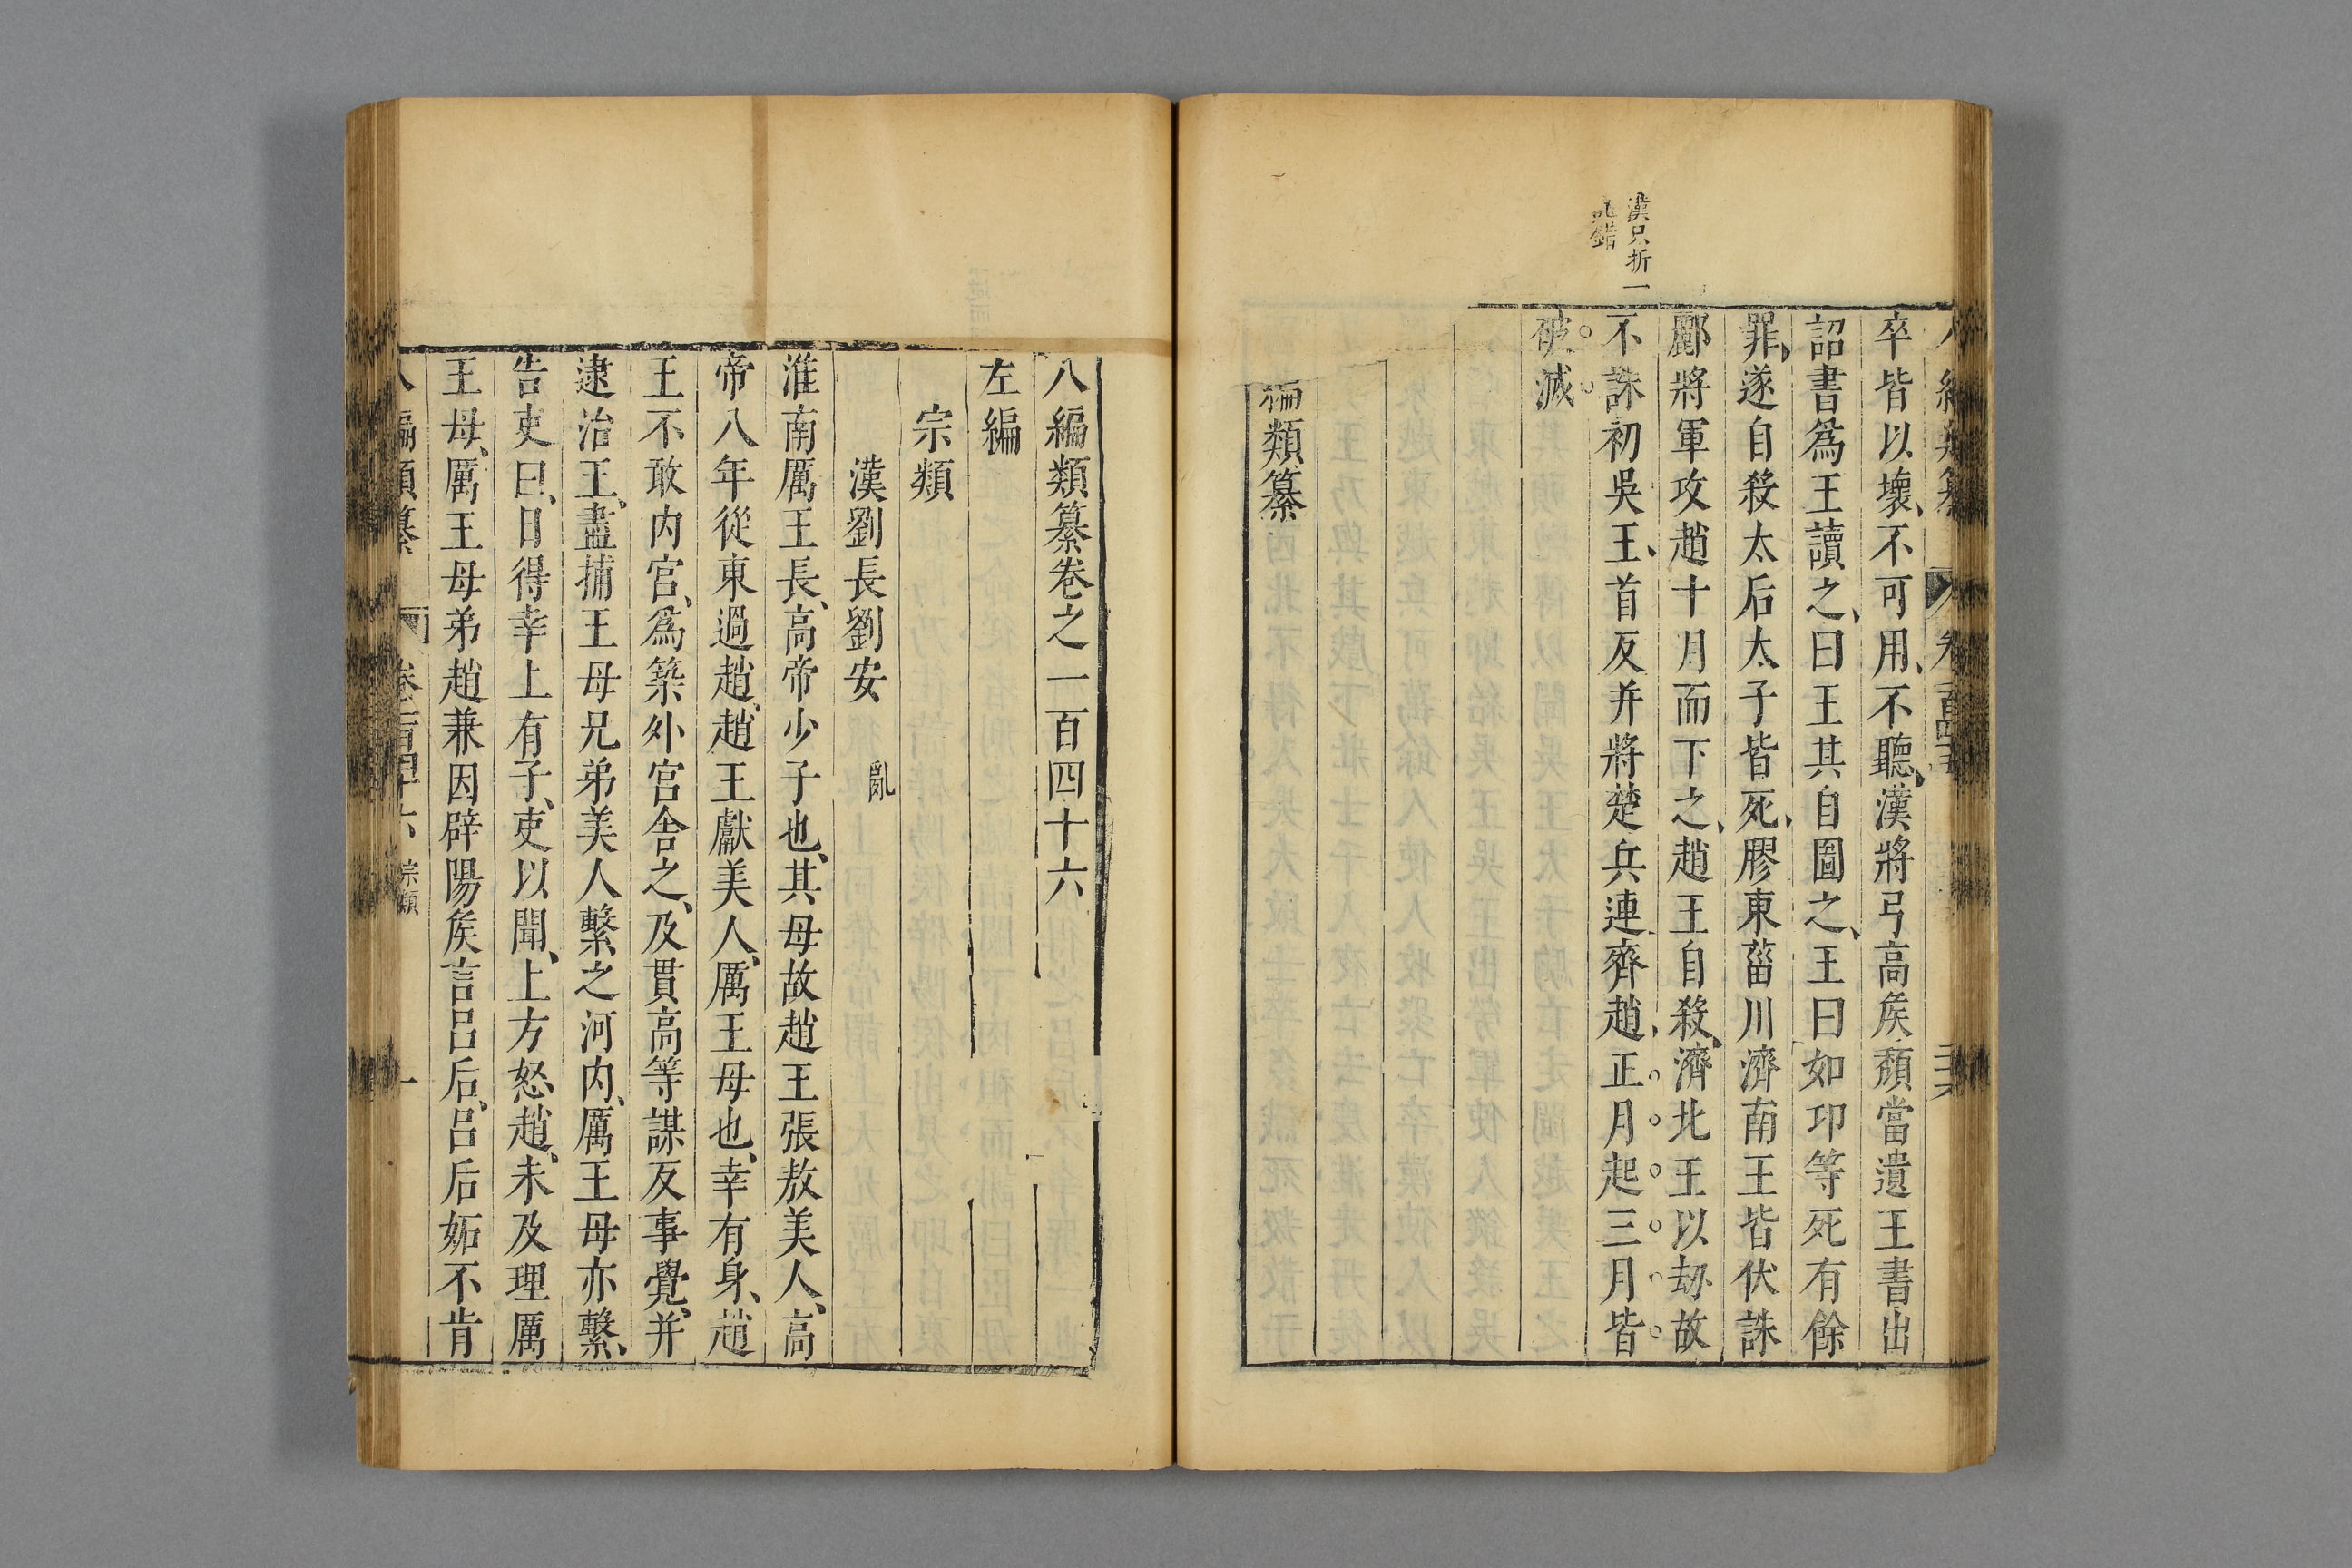 漢只折一
晁錯
卒皆以壞、不可用、不聽、漢將弓高矦頹當遺王書出
詔書爲王讀之、曰王其自圖之、王曰如卭等死有餘
罪、遂自殺太后太子皆死、膠東菑川濟南王皆伏誅
酈將軍攻趙十月而下之、趙王自殺、濟北王以劫故
不誅初吳王、首反并將楚兵連齊趙、正月起三月皆
破滅
編類纂
八編類纂卷之一百四十六
左編
宗類
漢劉長劉安 亂
淮南厲王長、高帝少子也、其母故趙王張敖美人、高
帝八年從東過趙、趙王獻美人、厲王母也、幸有身、趙
王不敢内宮、爲築外宮舍之、及貫高等謀反事覺、并
逮治王、盡捕王母兄弟美人繫之河内、厲王母亦繫、
告吏曰、日得幸上有子、吏以聞、上方怒趙、未及理厲
王母、厲王母弟趙兼因辟陽矦言呂后、呂后妬不肯
八編類纂 卷一百四十六 宗類 一